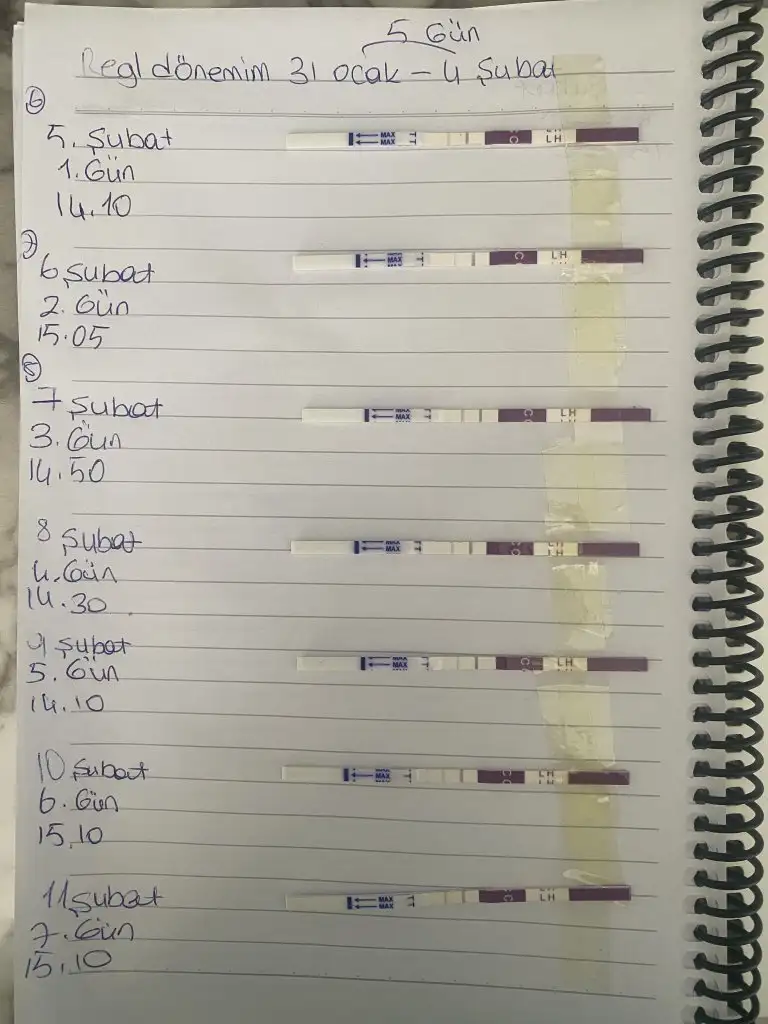 5 Gün
Regl dönemim 31 ocak - 4 Şubat
6
5. Şubat
1. Gün
14.10
MAX
MAX
T
C
LH
7
6 Şubat
2. Gün
15.05
MAX
T
C
LH
8
7 Şubat
3. Gün
14.50
MAX
MAX
T
C
LH
8 Şubat
4. Gün
14.30
MAX
MAX
T
C
LH
9 Şubat
5. Gün
14.10
MAX
MAX
T
C
LH
10 Şubat
6. Gün
15.10
MAX
T
C
LH
11 Şubat
7. Gün
15.10
MAX
MAX
T
C
LH